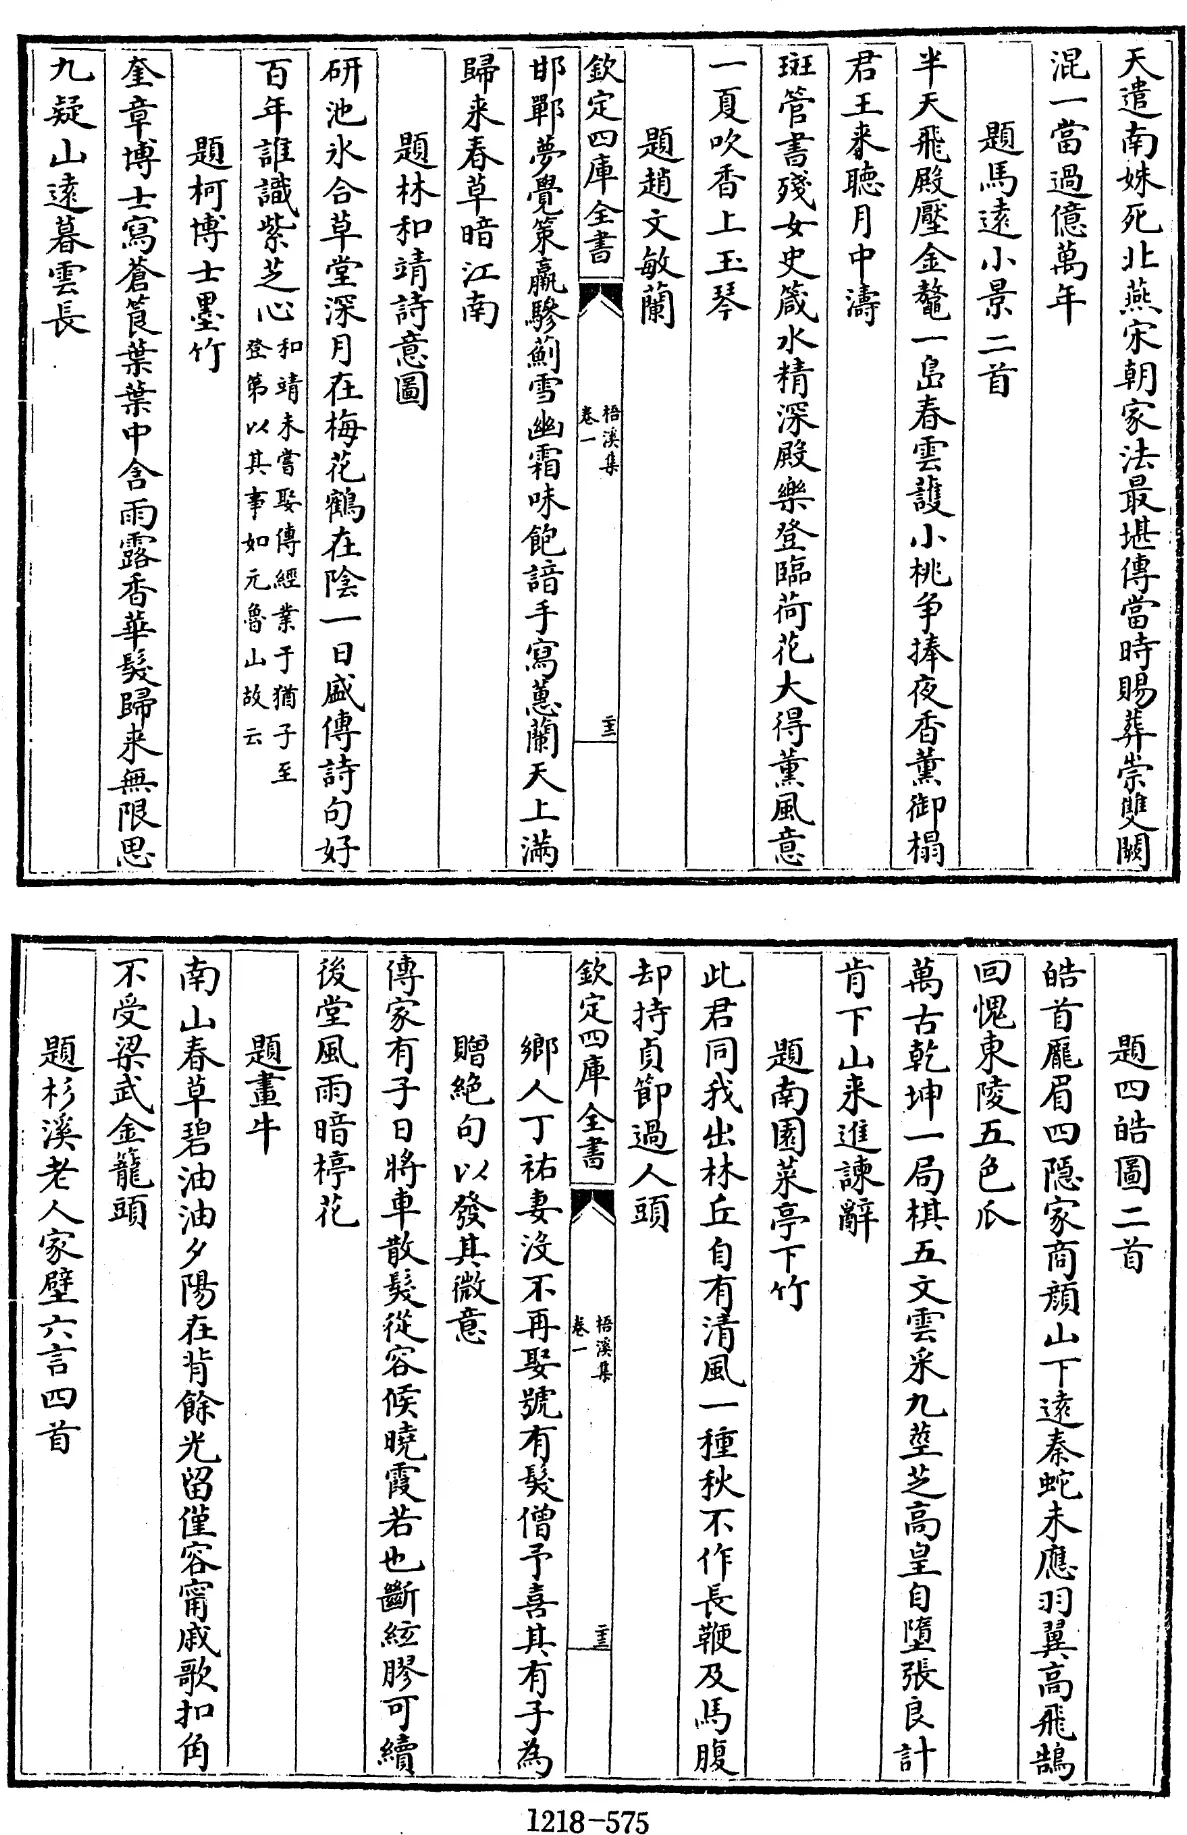 天遣南姝死北燕宋朝家法最堪傳當時賜葬崇雙闕
混一當過億萬年
題馬遠小景二首
半天飛殿壓金鼇一島春雲護小桃争捧夜香薰御榻
君王來聽月中濤
斑管書殘女史箴水精深殿樂登臨荷花大得薰風意
一夏吹香上玉琴
題趙文敏蘭
欽定四庫全書
梧溪集
卷一
邯鄲夢覺策羸驂薊雪幽霜味飽諳手寫蕙蘭天上滿
歸來春草暗江南
題林和靖詩意圖
研池氷合草堂深月在梅花鶴在陰一日盛傳詩句好
百年誰識紫芝心
和靖未嘗娶傳經業于猶子至
登第以其事如元魯山故云
題柯博士墨竹
奎章博士寫蒼筤葉葉中含雨露香華髮歸来無限思
九疑山遠暮雲長
題四皓圖二首
皓首龐眉四隱家商顔山下遠秦蛇未應羽翼高飛鵠
回愧東陵五色瓜
萬古乾坤一局棋五文雲采九莖芝高皇自墮張良計
肯下山来進諫辭
題南園菜亭下竹
此君同我出林丘自有清風一種秋不作長鞭及馬腹
却持貞節過人頭
欽定四庫全書
梧溪集
卷一
鄉人丁祐妻没不再娶號有髮僧予喜其有子為
贈絶句以發其微意
傳家有子日將車散髮從容候曉霞若也斷絃膠可續
後堂風雨暗楟花
題畫牛
南山春草碧油油夕陽在背餘光留僅容甯戚歌扣角
不受梁武金籠頭
題杉溪老人家壁六言四首
1218-575